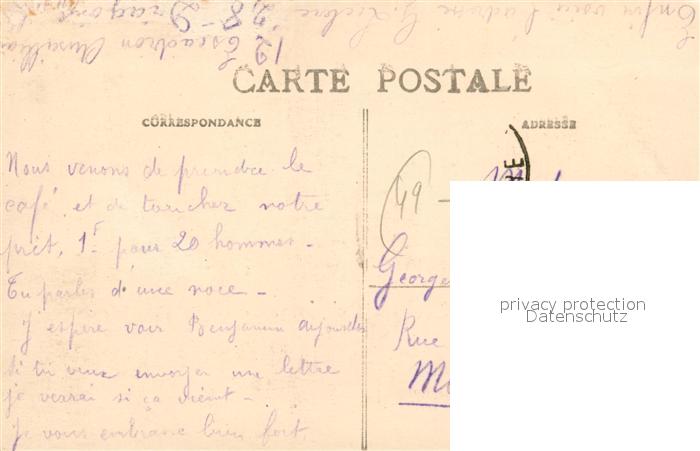 Enfin voici l'adresse G.
12 Escadron
28 - Dragons
CARTE POSTALE
CORRESPONDANCE
ADRESSE
Nous venons de prendre le
café et de toucher notre
prêt, 1f pour 20 hommes -
Tu parles d'une noce -
J espère voir Benjamin aujourdhui
si tu veux envoyer une lettre
je verrai si ça vient -
Je vous embrasse bien fort
49 -
George
Rue
privacy protection
Datenschutz